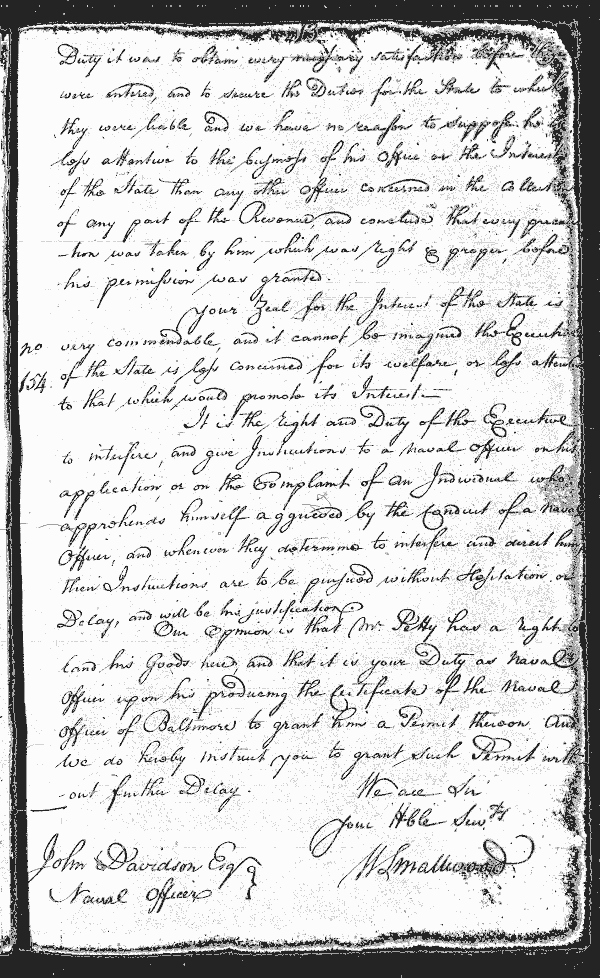 Duty it was to obtain every necessary satisfaction before
were entered, and to secure the Duties for the State to which
they were liable, and we have no reason to suppose he
less attentive to the business of his Office or the Interest
of the State than any other Officer concerned in the Collection
of any part of the Revenue and conclude that every precau
-tion was taken by him which was right & proper before
his permission was granted.
Your Zeal for the Interest of the State is
very commendable, and it cannot be imagined the Executive
of the State is less concerned for its welfare, or less attentive
to that which would promote its Interest—
no
154
It is the right and Duty of the Executive
to interfere, and give Instructions to a naval Officer on his
application, or on the Complaint of an Individual who
apprehends himself aggrieved by the Conduct of a Naval
Officer, and whenever they determine to interfere and direct him
their Instructions are to be pursued without Hesitation or
Delay, and will be his justification
Our Opinion is that Mr. Petty has a right to
land his Goods here, and that it is your Duty as Naval
Officer upon his producing the Certificate of the Naval
Officer of Baltimore to grant him a Permit thereon, And
we do hereby instruct you to grant such Permit with
-out further Delay.
We are Sir
Your Hble Servts
John Davidson Esqr
WSmallwood
Naval Officer